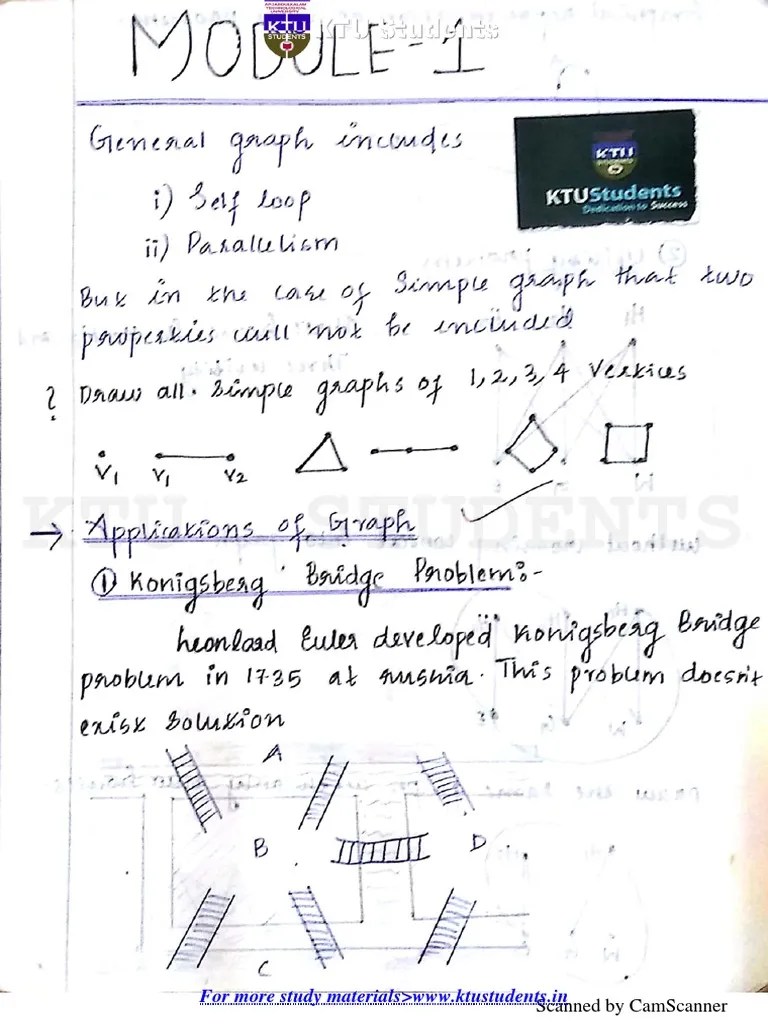 APJ ABDUL KALAM
TECHNOLOGICAL
UNIVERSITY
KTU
STUDENTS
KTU Students
MODULE-1
General graph includes
KTU
KTUStudents
Dedication to Success
i) Self loop
ii) Parallelism
But in the case of Simple graph that two
properties will not be included
? Draw all. Simple graphs of 1, 2, 3, 4 Vertices
V1 V1 V2
KTU STUDENTS
→ Applications of Graph
① Konigsberg Bridge Problem:-
Leonlard Euler developed "Konigsberg Bridge
problem in 1735 at Rushia. This problem doesn't
exist Solution
A
B D
C
For more study materials>www.ktustudents.in
Scanned by CamScanner